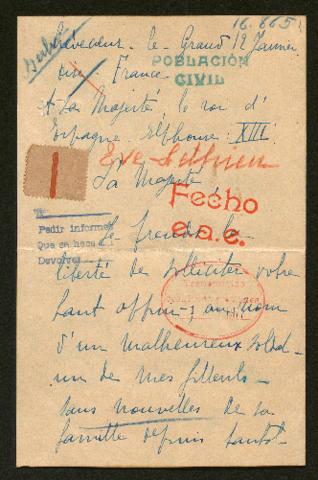 16.665
Crèvecoeur - le - Grand 12 Janvier
Oise. France
POBLACIÓN
CIVIL
A Sa Majesté le roi d'
Espagne Alphonse XIII.
Sa Majesté
Fecho
e.a.e.
Pedir informes
Que se hace
Devolver
Je prends la
liberté de solliciter votre
haut appui, au nom
d'un malheureux soldat
un de mes filleuls -
sans nouvelles de sa
famille depuis